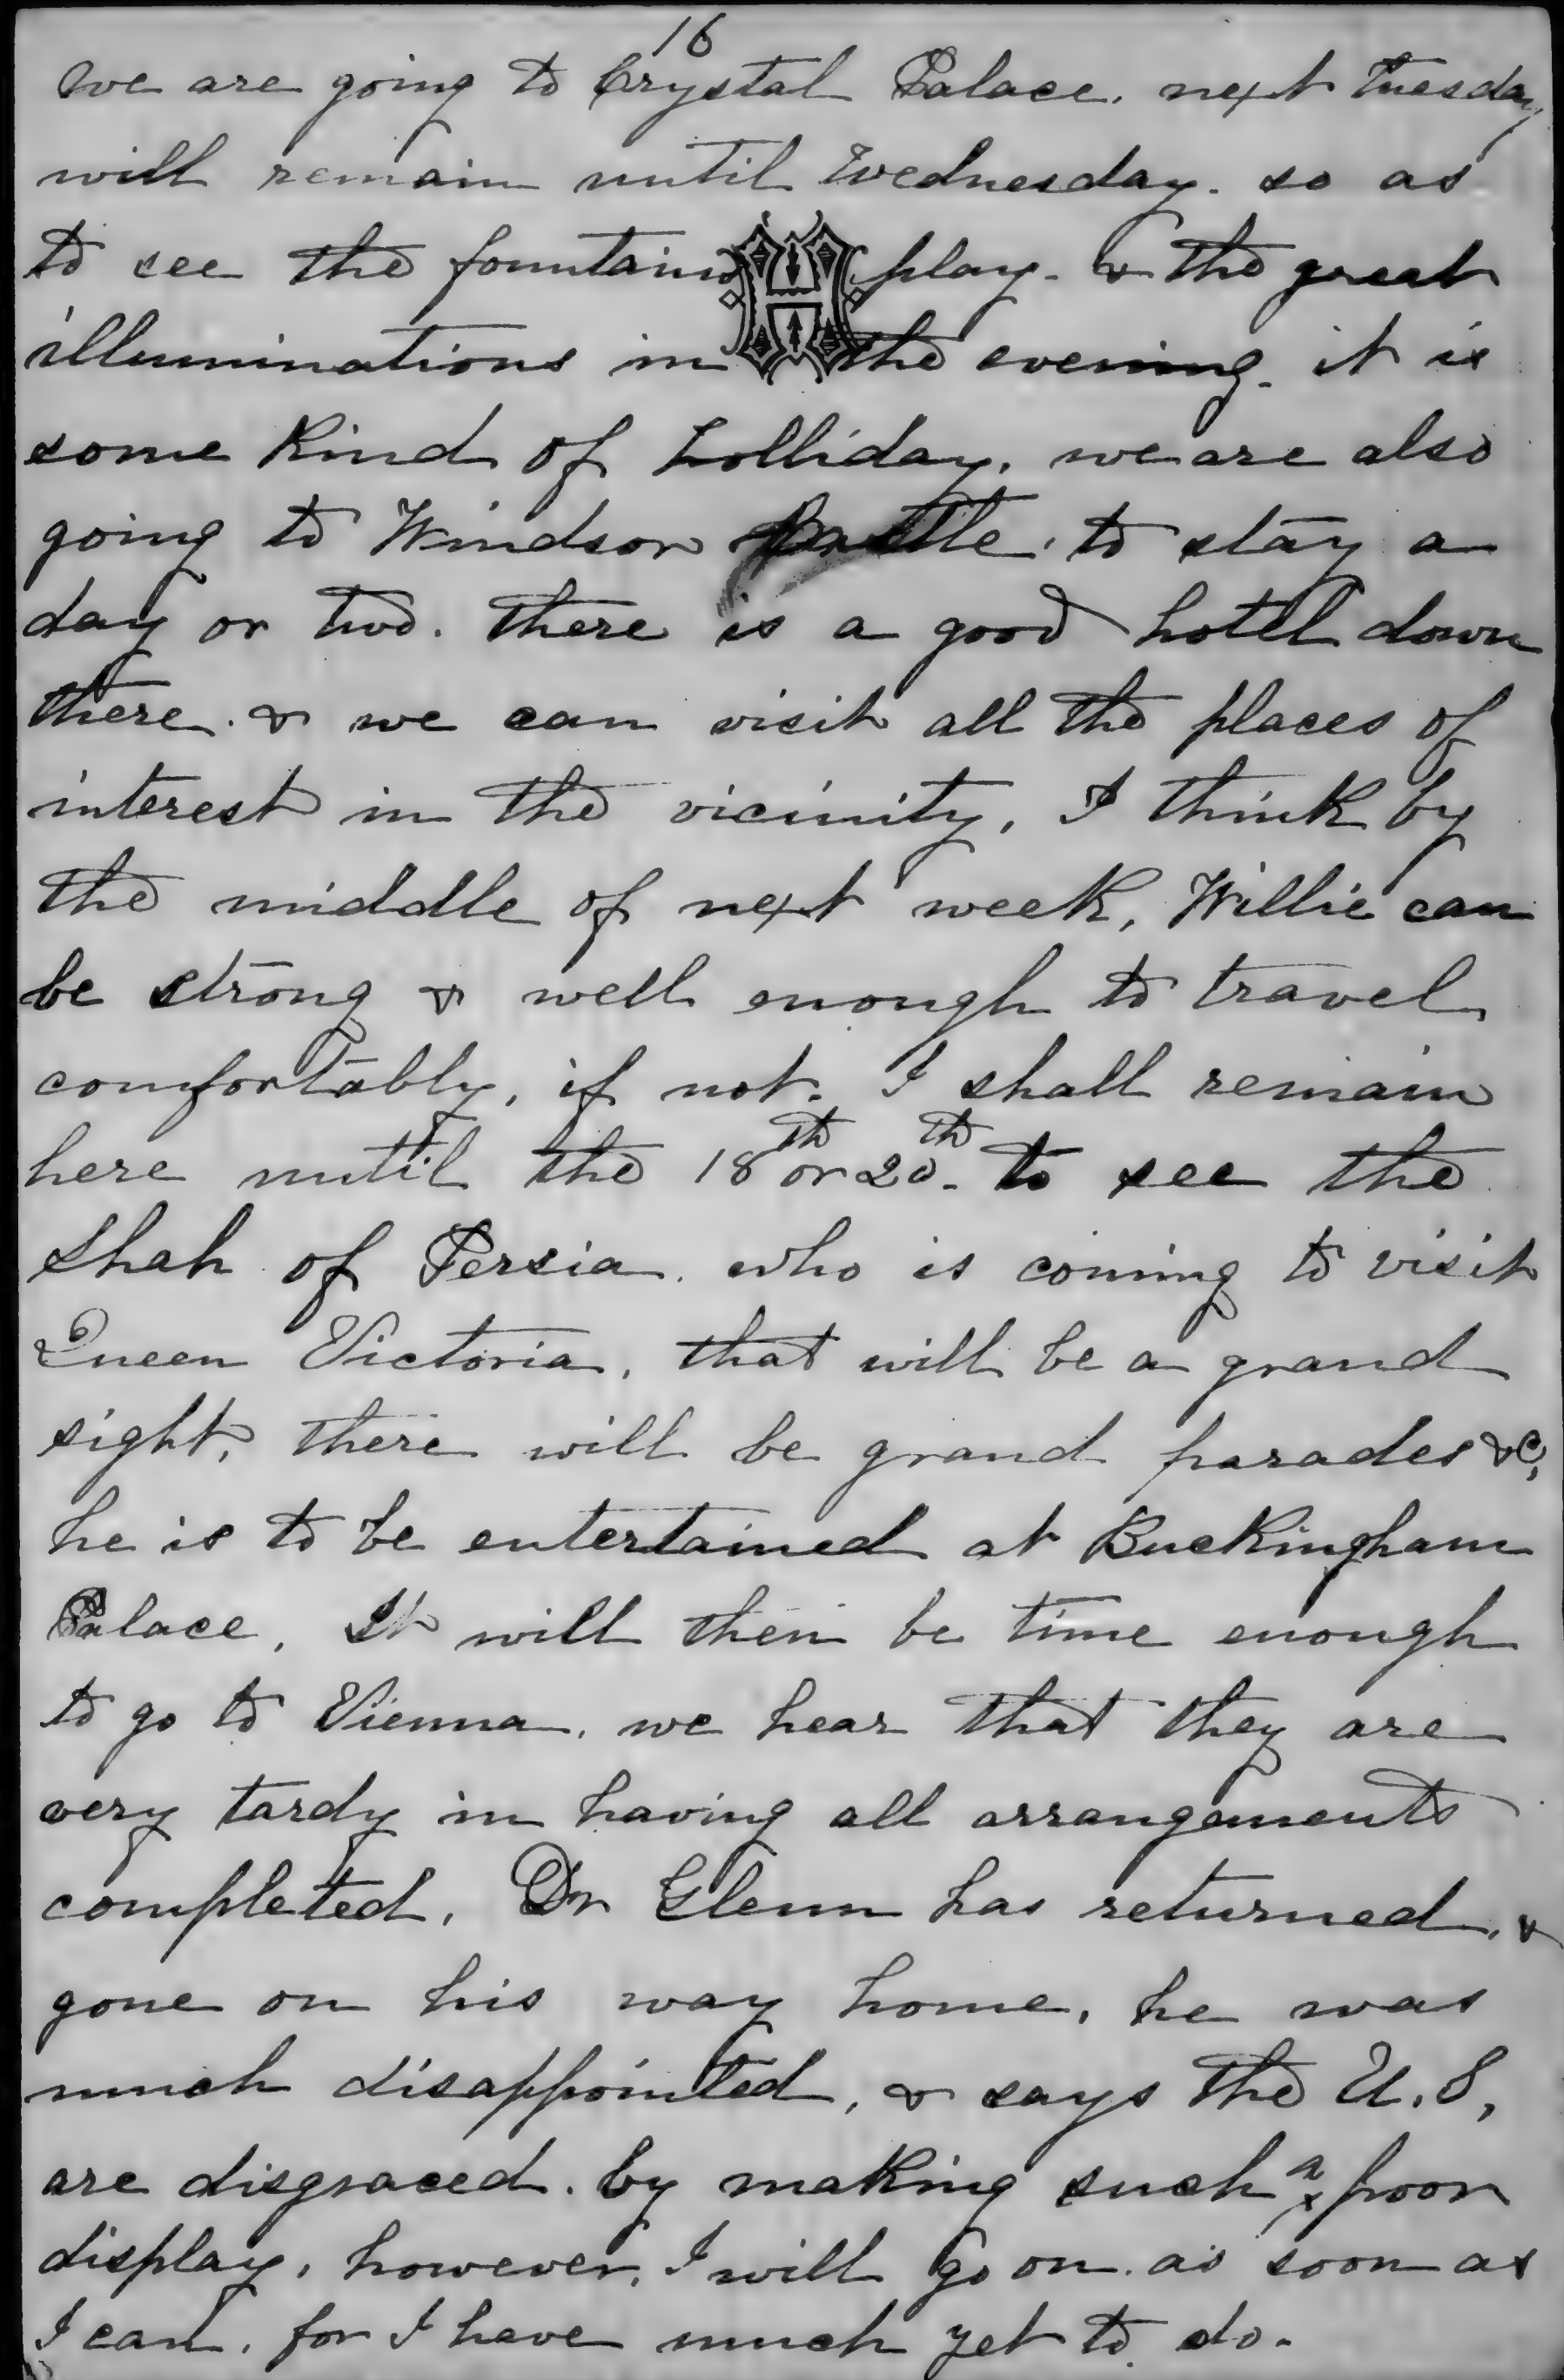 16
we are going to Crystal Palace. next Tuesday,
will remain until Wednesday. so as
to see the fountains play. & the great
illuminations in the evening. it is
some kind of holliday. we are also
going to Windsor Castle. to stay a
day or two. there is a good hotel down
there. & we can visit all the places of
interest in the vicinity, I think by
the middle of next week, Willie can
be strong & well enough to travel
comfortably, if not. I shall remain
here until the 18th or 20th. to see the
Shah of Persia. who is coming to visit
Queen Victoria, that will be a grand
sight, there will be grand parades &c,
he is to be entertained at Buckingham
Palace, It will then be time enough
to go to Vienna. we hear that they are
very tardy in having all arrangements
completed, Dr Glenn has returned, &
gone on his way home, he was
much disappointed, & says the U.S,
are disgraced. by making such a poor
display, however, I will go on. as soon as
I can, for I have much yet to do.